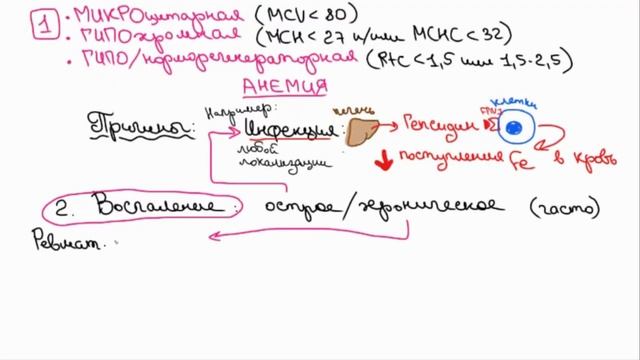 1 • МИКРОцитарная (MCV < 80)
• ГИПОхромная (MCH < 27 и/или MCHC < 32)
• ГИПО/норморегенераторная (RtC < 1,5 или 1,5-2,5)
АНЕМИЯ
Причины: Например: Инфекция: любой локализации
печень Гепсидин FPN1 клетки
↓ поступления Fe в кровь
2. Воспаление: острое/хроническое (часто)
Ревмат.